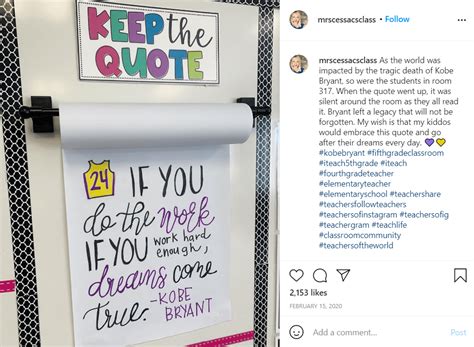 KEEP the
QUOTE
24
IF YOU
do the work
IF YOU work hard
enough,
dreams come
true.
-KOBE
BRYANT
mrscessacsclass • Follow
mrscessacsclass As the world was
impacted by the tragic death of Kobe
Bryant, so were the students in room
317. When the quote went up, it was
silent around the room as they all read
it. Bryant left a legacy that will not be
forgotten. My wish is that my kiddos
would embrace this quote and go
after their dreams every day. 💜💛
#kobebryant #fifthgradeclassroom
#iteach5thgrade #iteach
#fourthgradeteacher
#elementaryteacher
#elementaryschool #teachershare
#teachersfollowteachers
#teachersofinstagram #teachersofig
#teachergram #teachlife
#classroomcommunity
#teachersoftheworld
2,153 likes
FEBRUARY 15, 2020
Add a comment...
Post